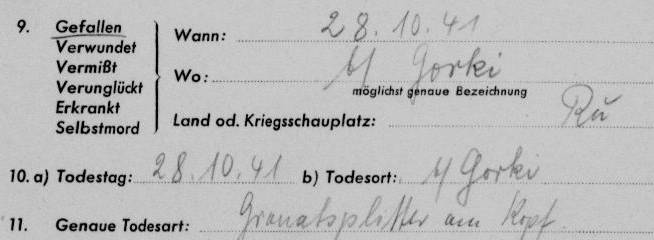 9. Gefallen
Verwundet
Vermißt
Verunglückt
Erkrankt
Selbstmord
Wann: 28.10.41
Wo: b/ Gorki
möglichst genaue Bezeichnung
Land od. Kriegsschauplatz: Ru
10. a) Todestag: 28.10.41 b) Todesort: b/ Gorki
11. Genaue Todesart: Granatsplitter am Kopf